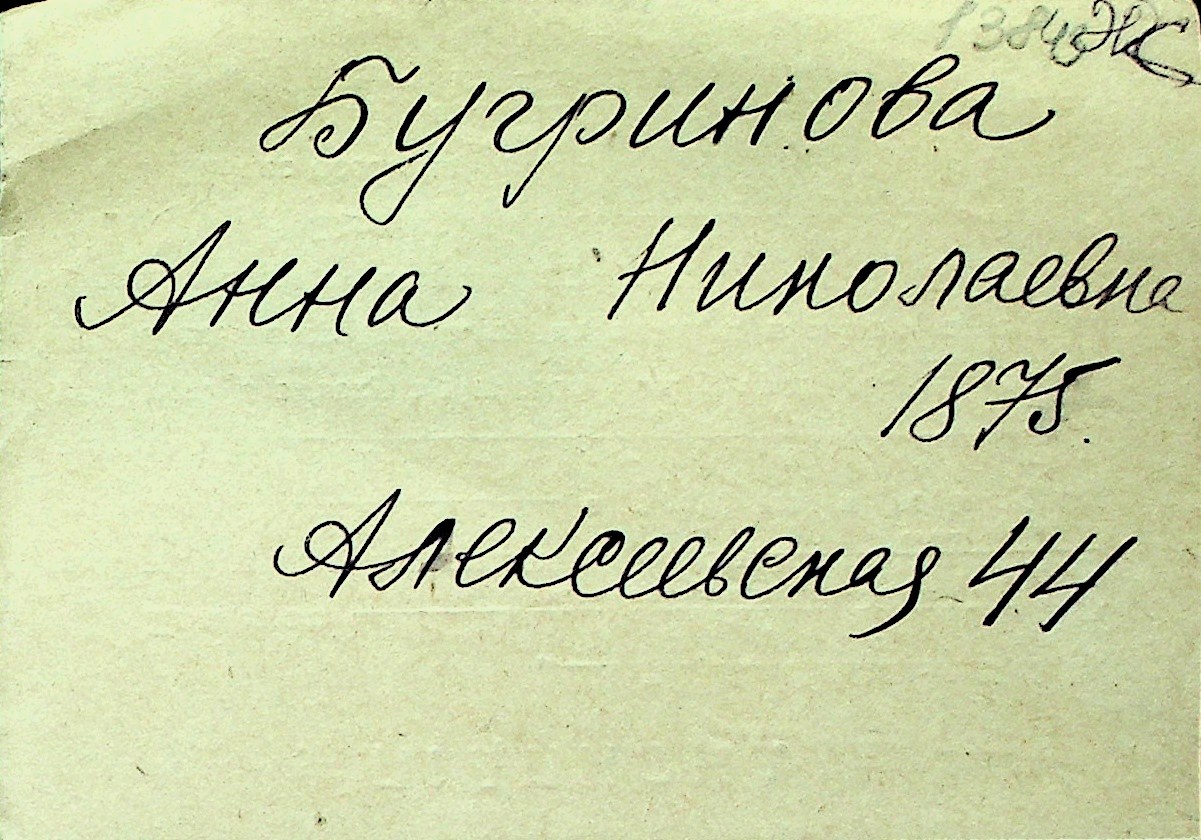 Бугринова
Анна Николаевна
1875.
Алексеевская 44